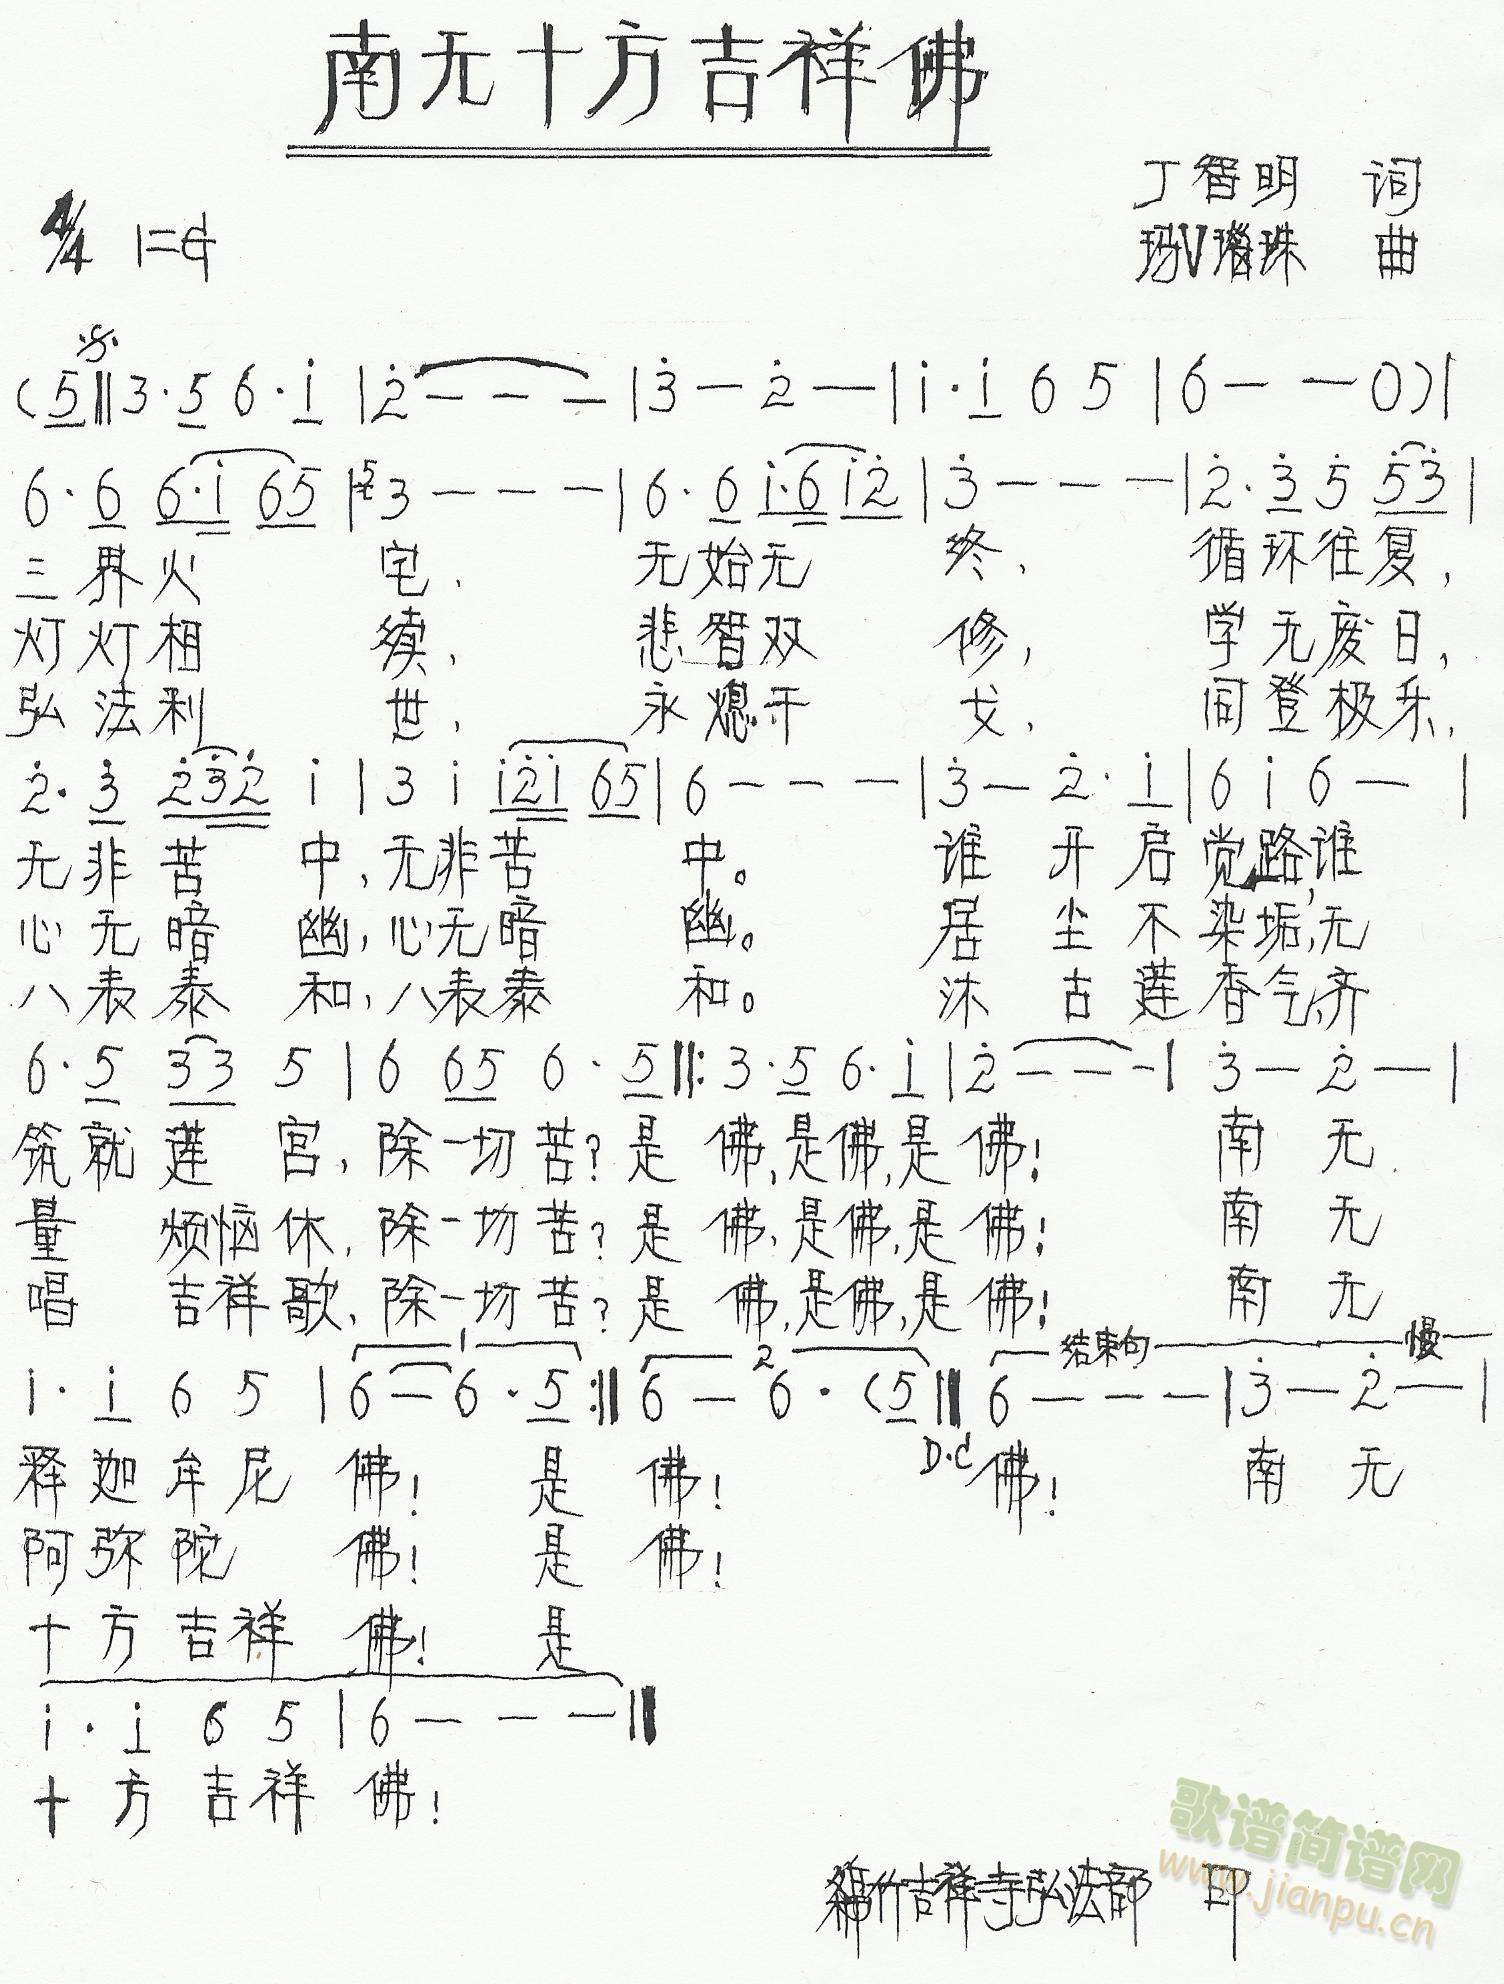 南无十方吉祥佛
丁智明 词
玛V瑙珠 曲
4/4 1=G
(5‖3·5 6·i |2̇ - - - |3̇ - 2̇ - |i·i 6 5 |6 - - 0)|
6·6 6·i 65 |3 - - - |6·6 i·6 i2̇ |3̇ - - - |2̇·3̇ 5̇ 5̇3̇ |
三界火 宅, 无始无 终, 循环往复,
灯灯相 续, 悲智双 修, 学无废日,
弘法利 世, 永熄干 戈, 同登极乐,
2̇·3̇ 2̇3̇2̇ i |3 i i2̇i 65 |6 - - - |3̇ - 2̇·i |6 i 6 - |
无非苦 中,无非苦 中。 谁 开启觉路,谁
心无暗 幽,心无暗 幽。 居 尘不染垢,无
八表泰 和,八表泰 和。 沐 古莲香气,齐
6·5 33 5 |6 65 6·5 ‖: 3·5 6·i |2̇ - - - | 3̇ - 2̇ - |
筑就莲 宫,除一切苦?是 佛,是佛,是佛! 南 无
量 烦恼休,除一切苦?是 佛,是佛,是佛! 南 无
唱 吉祥歌,除一切苦?是 佛,是佛,是佛! 南 无
1 2 结束句 慢
i·i 6 5 |6 - 6·5 :‖ 6 - 6·(5 ‖ 6 - - - |3̇ - 2̇ - |
D·C
释迦牟尼 佛! 是 佛! 佛! 南 无
阿弥陀 佛! 是 佛!
十方吉祥 佛! 是
i·i 6 5 |6 - - - ‖
十方 吉祥 佛!
绵竹吉祥寺弘法部 印
歌谱简谱网
www.jianpu.cn